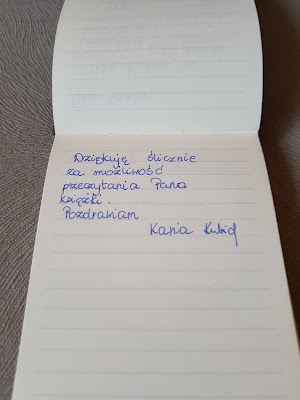 Dziękuję ślicznie
za możliwość
przeczytania Pana
książki.
Pozdrawiam
Kania